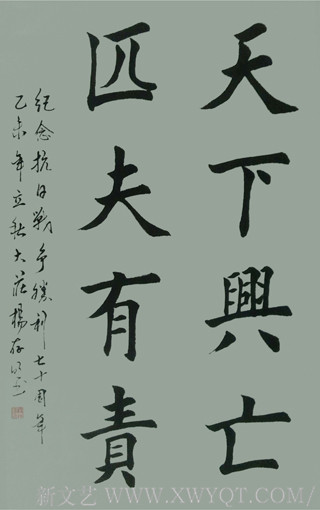 天下興亡
匹夫有責
紀念抗日戰爭勝利七十周年
乙未年立秋大莊楊存
新文艺 WWW.XWYQT.COM